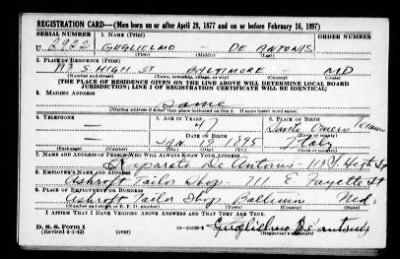 REGISTRATION CARD—(Men born on or after April 28, 1877 and on or before February 16, 1897)
SERIAL NUMBER 1. NAME (Print) ORDER NUMBER
U 2922 GUGLIELMO - DE ANTONIS
(First) (Middle) (Last)
2. PLACE OF RESIDENCE (Print)
113 S HIGH ST BALTIMORE - MD
(Number and street) (Town, township, village, or city) (County) (State)
[THE PLACE OF RESIDENCE GIVEN ON THE LINE ABOVE WILL DETERMINE LOCAL BOARD
JURISDICTION; LINE 2 OF REGISTRATION CERTIFICATE WILL BE IDENTICAL]
3. MAILING ADDRESS
Same
(Mailing address if other than place indicated on line 2. If same insert word same)
4. TELEPHONE 5. AGE IN YEARS 6. PLACE OF BIRTH
— 47 Sante Omero Teramo
DATE OF BIRTH
— JAN. 19 1895 Italy
(Exchange) (Number) (Mo.) (Day) (Yr.) (State or country)
7. NAME AND ADDRESS OF PERSON WHO WILL ALWAYS KNOW YOUR ADDRESS
De Antonis - 113 S. High St
8. EMPLOYER'S NAME AND ADDRESS
Ashcroft Tailor Shop - 211 E. Fayette St
9. PLACE OF EMPLOYMENT OR BUSINESS
Ashcroft Tailor Shop. Baltimore Md.
(Number and street or R. F. D. number) (Town) (County) (State)
I AFFIRM THAT I HAVE VERIFIED ABOVE ANSWERS AND THAT THEY ARE TRUE.
D. S. S. Form 1
(Revised 4-1-42) (over) Guglielmo De Antonis
(Registrant's signature)